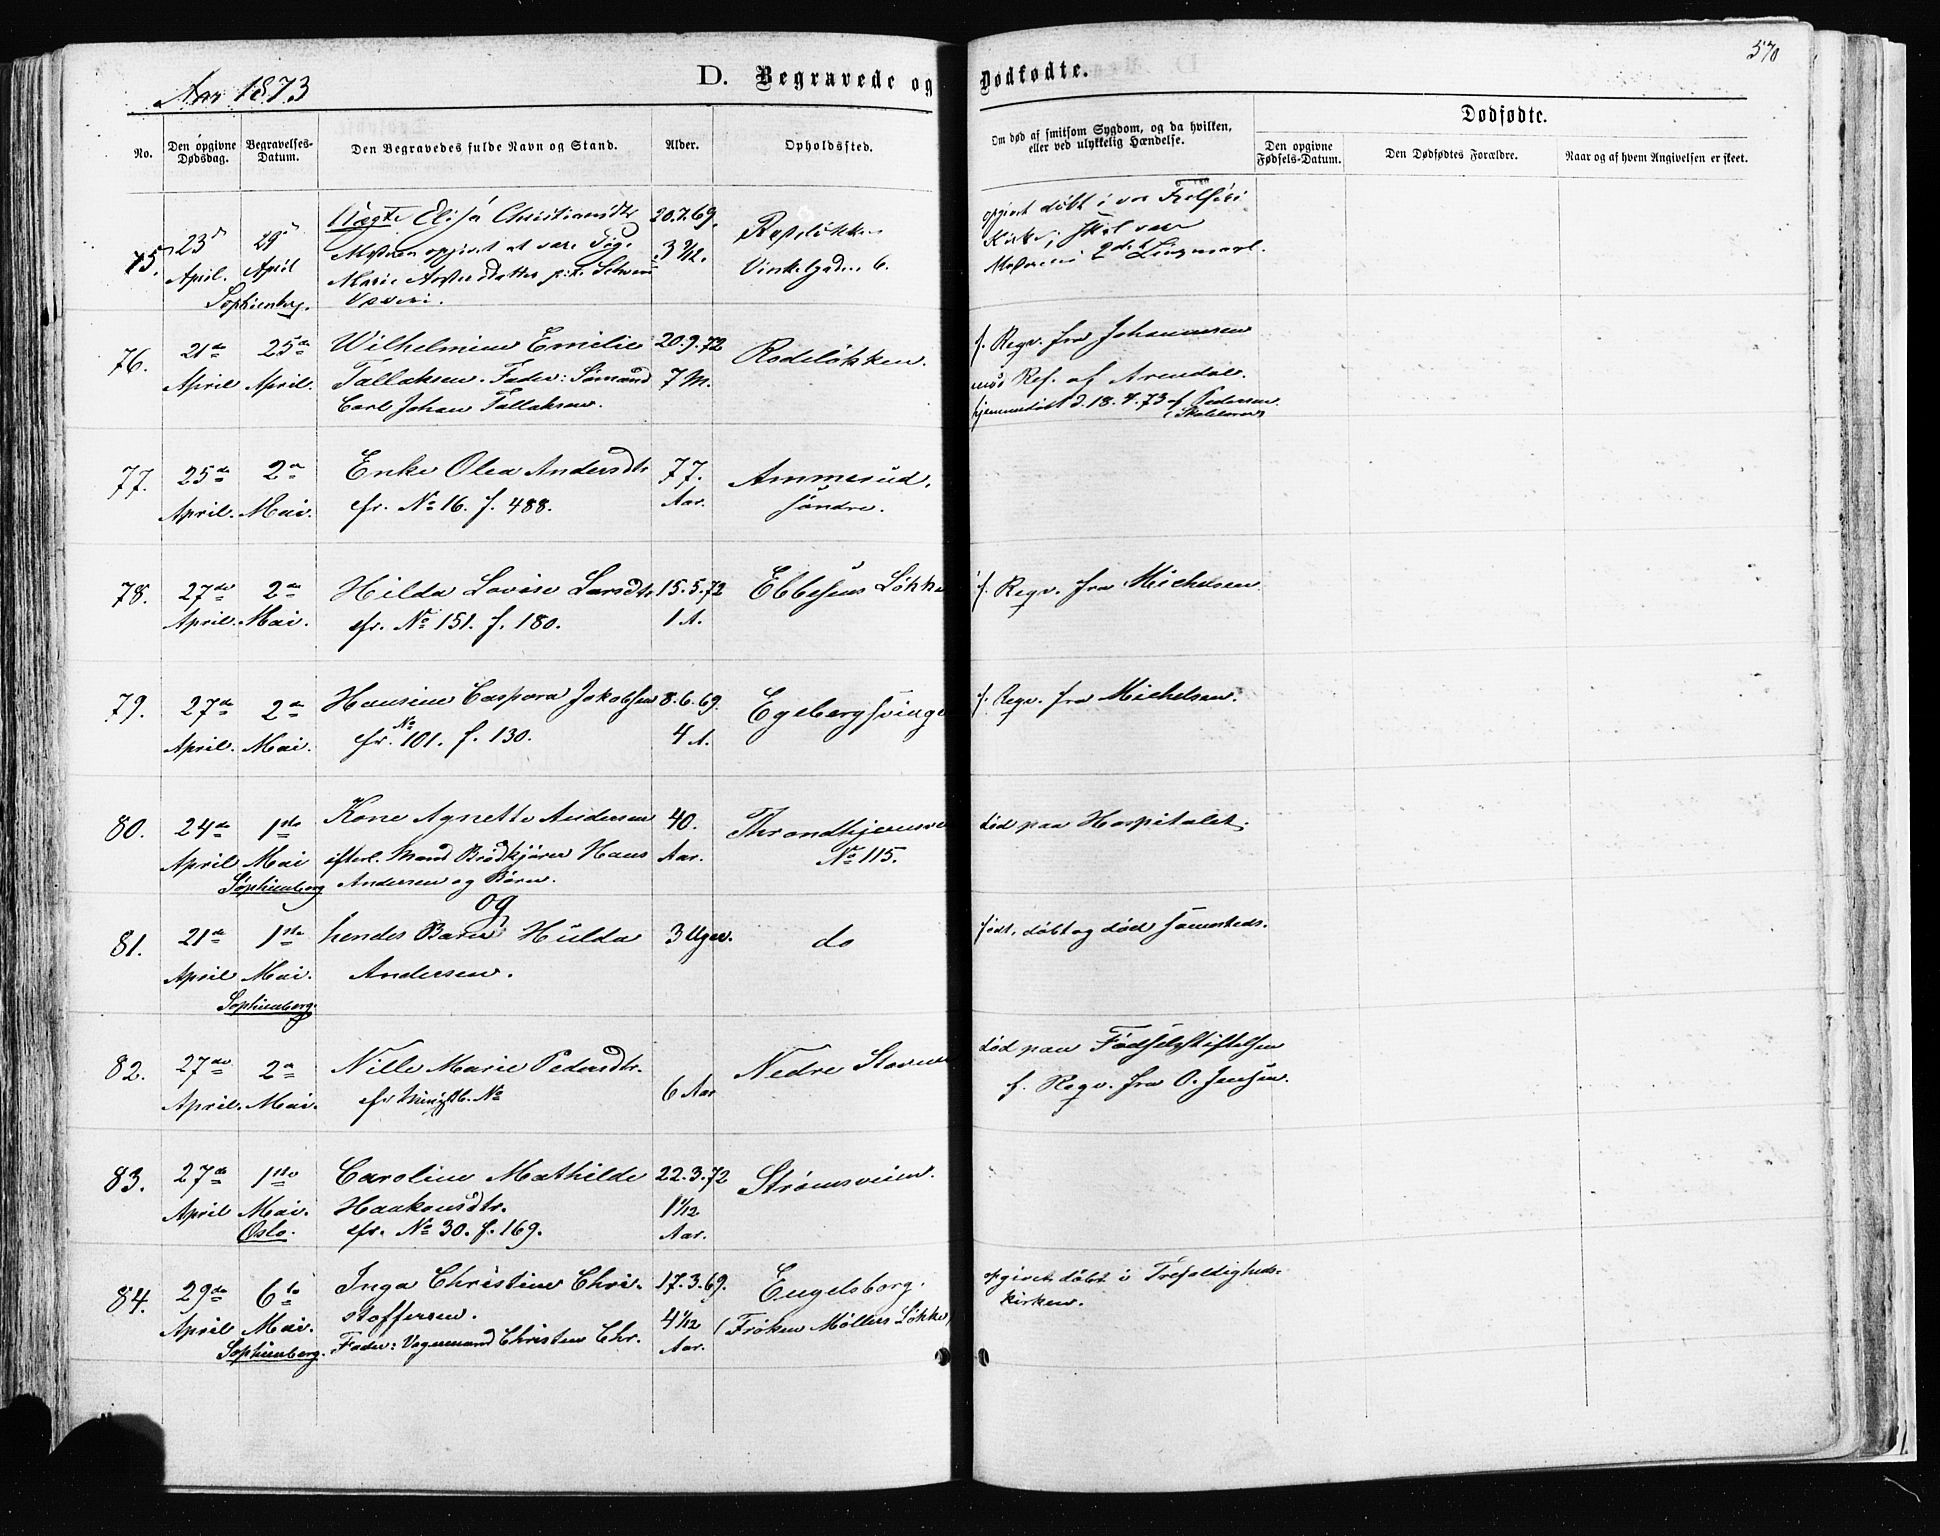 570
Aar 1873
D. Begravede og Dødfødte.
No.
Den opgivne Dødsdag.
Begravelses-Datum.
Den Begravedes fulde Navn og Stand.
Alder.
Opholdssted.
Om død af smitsom Sygdom, og da hvilken, eller ved ulykkelig Hændelse.
Dødfødte.
Den opgivne Fødsels-Datum.
Den Dødfødtes Forældre.
Naar og af hvem Angivelsen er skeet.
75. 23 29 Uægte Elisa Christiansdtr 20.7.69.
April. April Moderen opgivet at være Pige 3 9/12.
Marie
Sophienberg. Væveri.
Vinkelgaden 6.
opgivet døbt i vor Frelsers
Kirke,
76. 21de 25de Wilhelmine Emilie 20.9.72 Rodeløkken. f. Regn. fra Johannesen
April April. Tallaksen. Fader: Sømand 7 M. Res. af Arendal.
Carl Johan Tallaksen. hjemmedøbt d. 18.4.73 af Pedersen
77. 25de 2den Enke Olea Andersdtr 77. Ammerud,
April. Mai. cfr. No 16. f. 488. Aar. søndre.
78. 27de 2den Hilda Lovise Larsdtr. 15.5.72 Ebbesens Løkke f. Regn. fra Michelsen
April. Mai. cfr. No 151. f. 180. 1 A.
79. 27de 2den Hansine Caspara Jakobsen 8.6.69. Egebergsvinge f. Regn. fra Michelsen.
April. Mai. cfr. No 101. f. 130. 4 A.
80. 24de 1ste Kone Agnette Andersen 40. Throndhjemsve død paa Hospitalet.
April Mai efterl. Mand Brødkjører Hans Aar. No 115.
Sophienberg Andersen og Børn.
og
81. 21de 1ste hendes Barn Hulda 3 Uger. do født, døbt og død samesteds.
April Mai. Andersen.
Sophienberg.
82. 27de 2den Nille Marie Pedersdtr. Nedre Stovner død paa Fødselsstiftelsen
April. Mai. cfr Minist b. No 6 Aar f. Regn. fra O. Jensen.
83. 27de 1ste Caroline Mathilde 22.3.72 Strømsveien.
April Mai. Haakonsdtr. 1 1/12
Oslo. cfr. No 30. f. 169. Aar.
84. 29de 6te Inga Christine Chri- 17.3.69. Engelsborg. opgivet døbt i Trefoldigheds-
April Mai. stoffersen. 4 1/12 (Frøken Møllers Løkke) kirken.
Sophienberg. Fader: Vognmand Christen Chr. Aar.